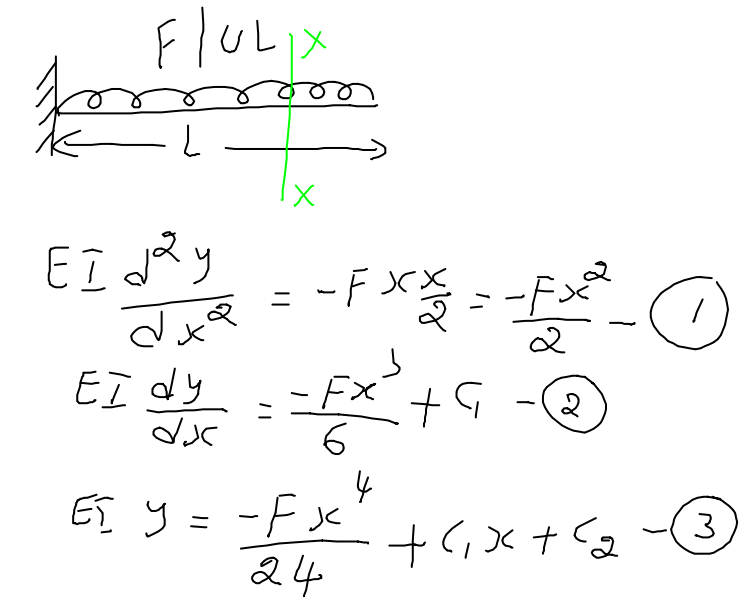 F/UL X
L
X
EI d²y/dx² = -Fx x/2 = -Fx²/2 - ①
EI dy/dx = -Fx³/6 + C₁ - ②
EI y = -Fx⁴/24 + C₁x + C₂ - ③